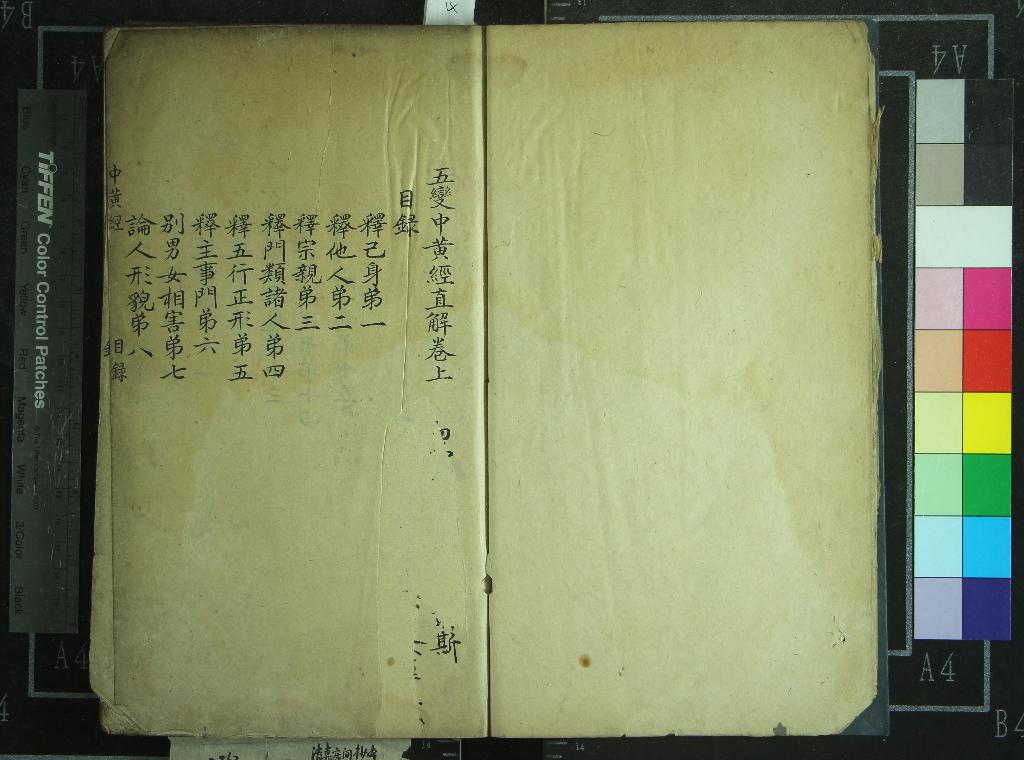 五變中黃經直解卷上
目錄
釋己身弟一
釋他人弟二
釋宗親弟三
釋門類諸人弟四
釋五行正形弟五
釋主事門弟六
別男女相害弟七
論人形貌弟八
中黃經
目錄
斯
TIFFEN Color Control Patches
Blue
Cyan
Green
Yellow
Red
Magenta
White
3/Color
Black
A4
A4
A4
A4
B4
B4
14
14